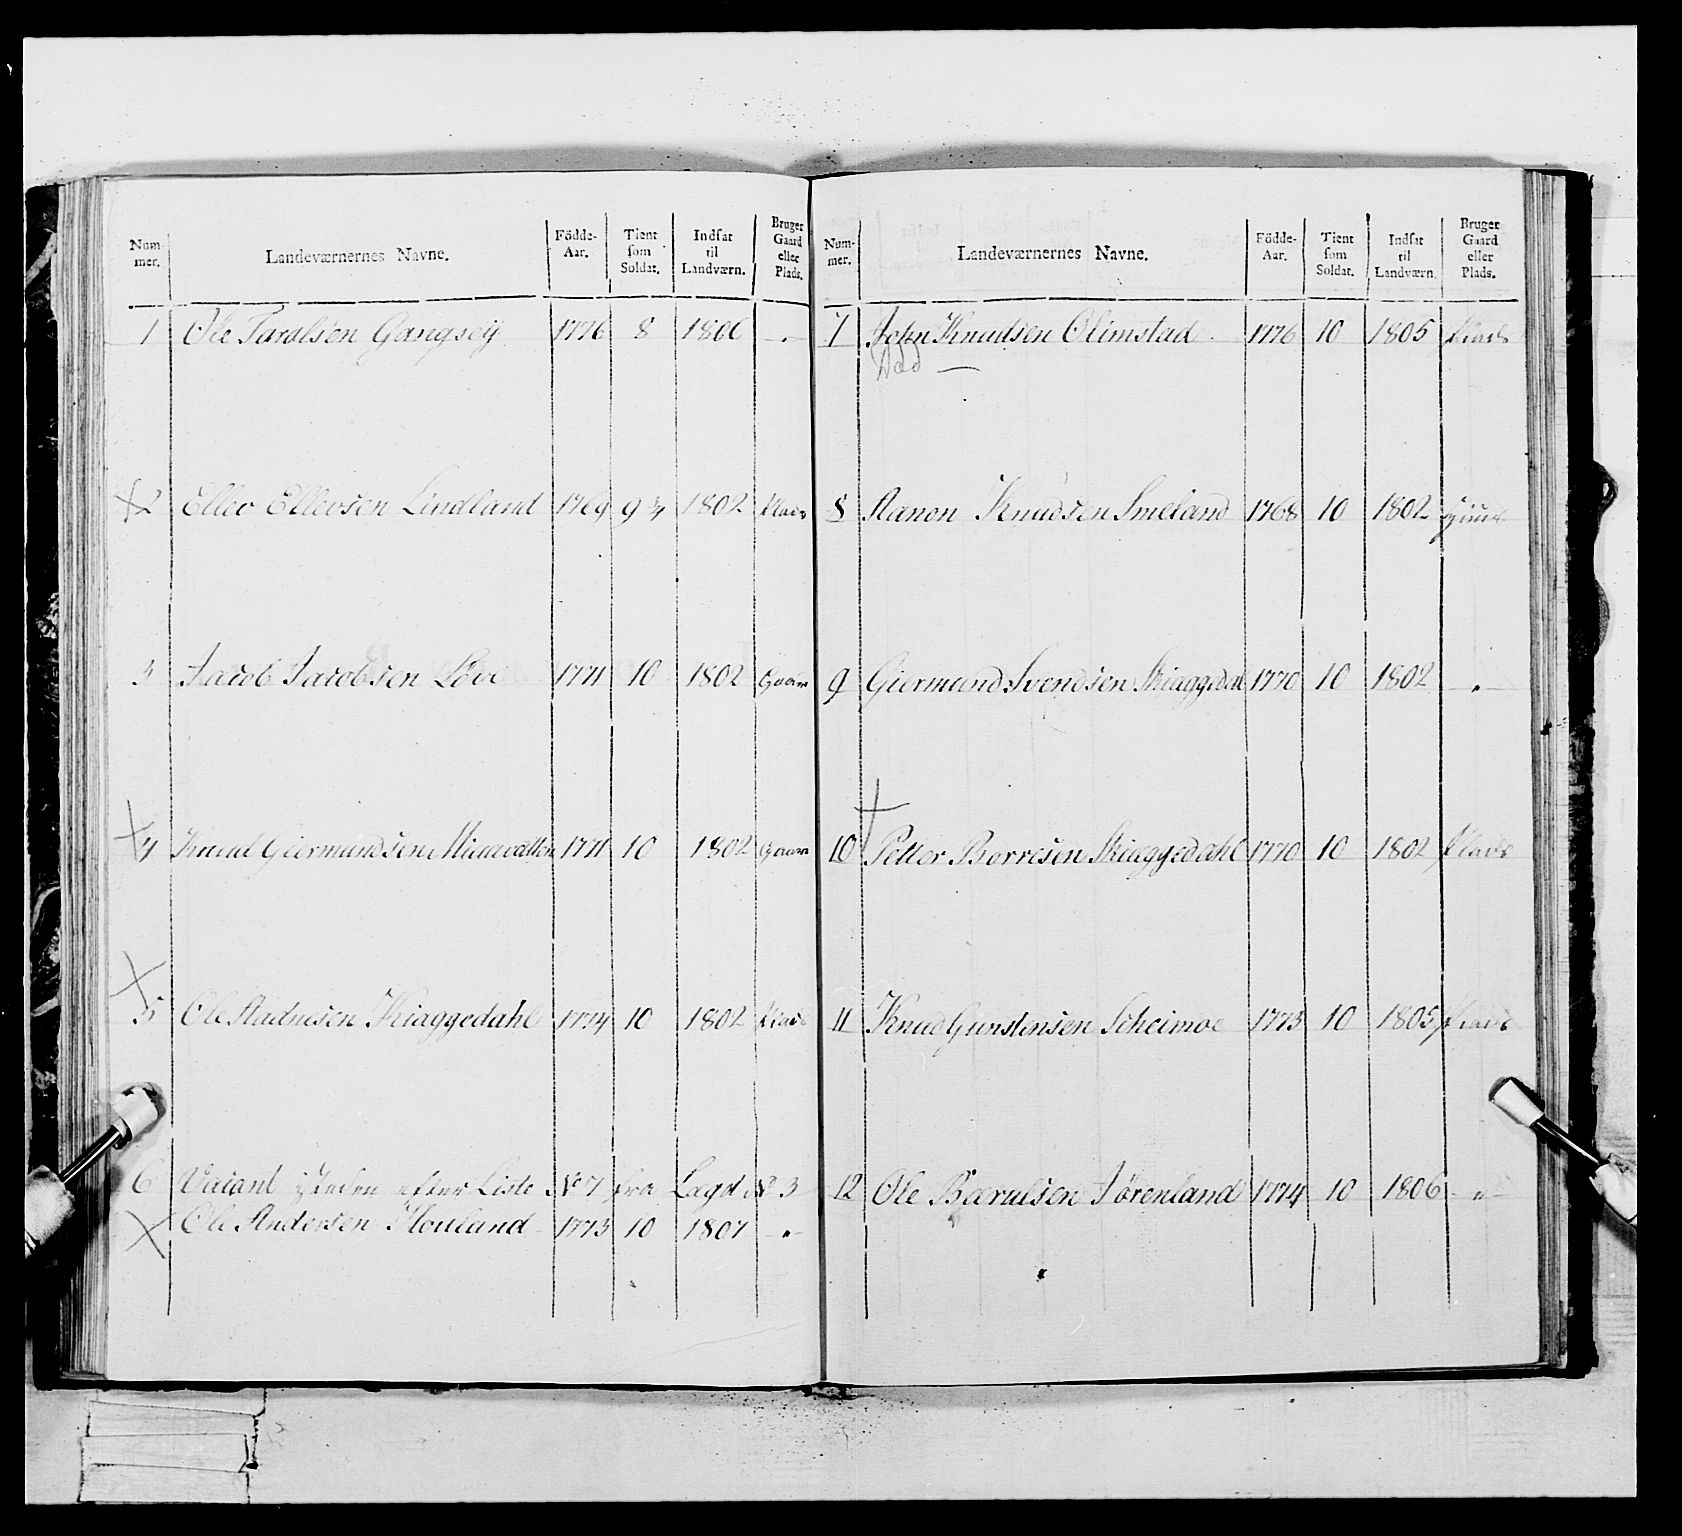 Num-mer. | Landeværnernes Navne. | Födde-Aar. | Tient som Soldat. | Indsat til Landværn. | Bruger Gaard eller Plads.
1 | Ole Taralsen Gangsøy | 1776 | 8 | 1806 | - " -
2 | Ellev Ellevsen Lindland | 1769 | 9 3/4 | 1802 | Plads
3 | Jacob Jacobsen Løve | 1771 | 10 | 1802 | Gaar
4 | Knud Giermundsen | 1771 | 10 | 1802 | Gaar
5 | Ole Aadnesen Kiaggedahl | 1774 | 10 | 1802 | Plads
6 | Vacant isteden efter Liste No 7 fra Lægd No 3
Ole Andersen Houland | 1773 | 10 | 1807 | - " -
Num-mer. | Landeværnernes Navne. | Födde-Aar. | Tient som Soldat. | Indsat til Landværn. | Bruger Gaard eller Plads.
7 | John Knudsen Olimstad | 1776 | 10 | 1805 | Plads
Død
8 | Aanon Knudsen Smeland | 1768 | 10 | 1802
9 | Giermund Svendsen Skiaggedal | 1770 | 10 | 1802 | - " -
10 | Petter Borresen Skiaggedahl | 1770 | 10 | 1802 | Plads
11 | Knud Gunstensen Scheimoe | 1773 | 10 | 1805 | Plads
12 | Ole Bærulsen Tørenland | 1774 | 10 | 1806 | - " -